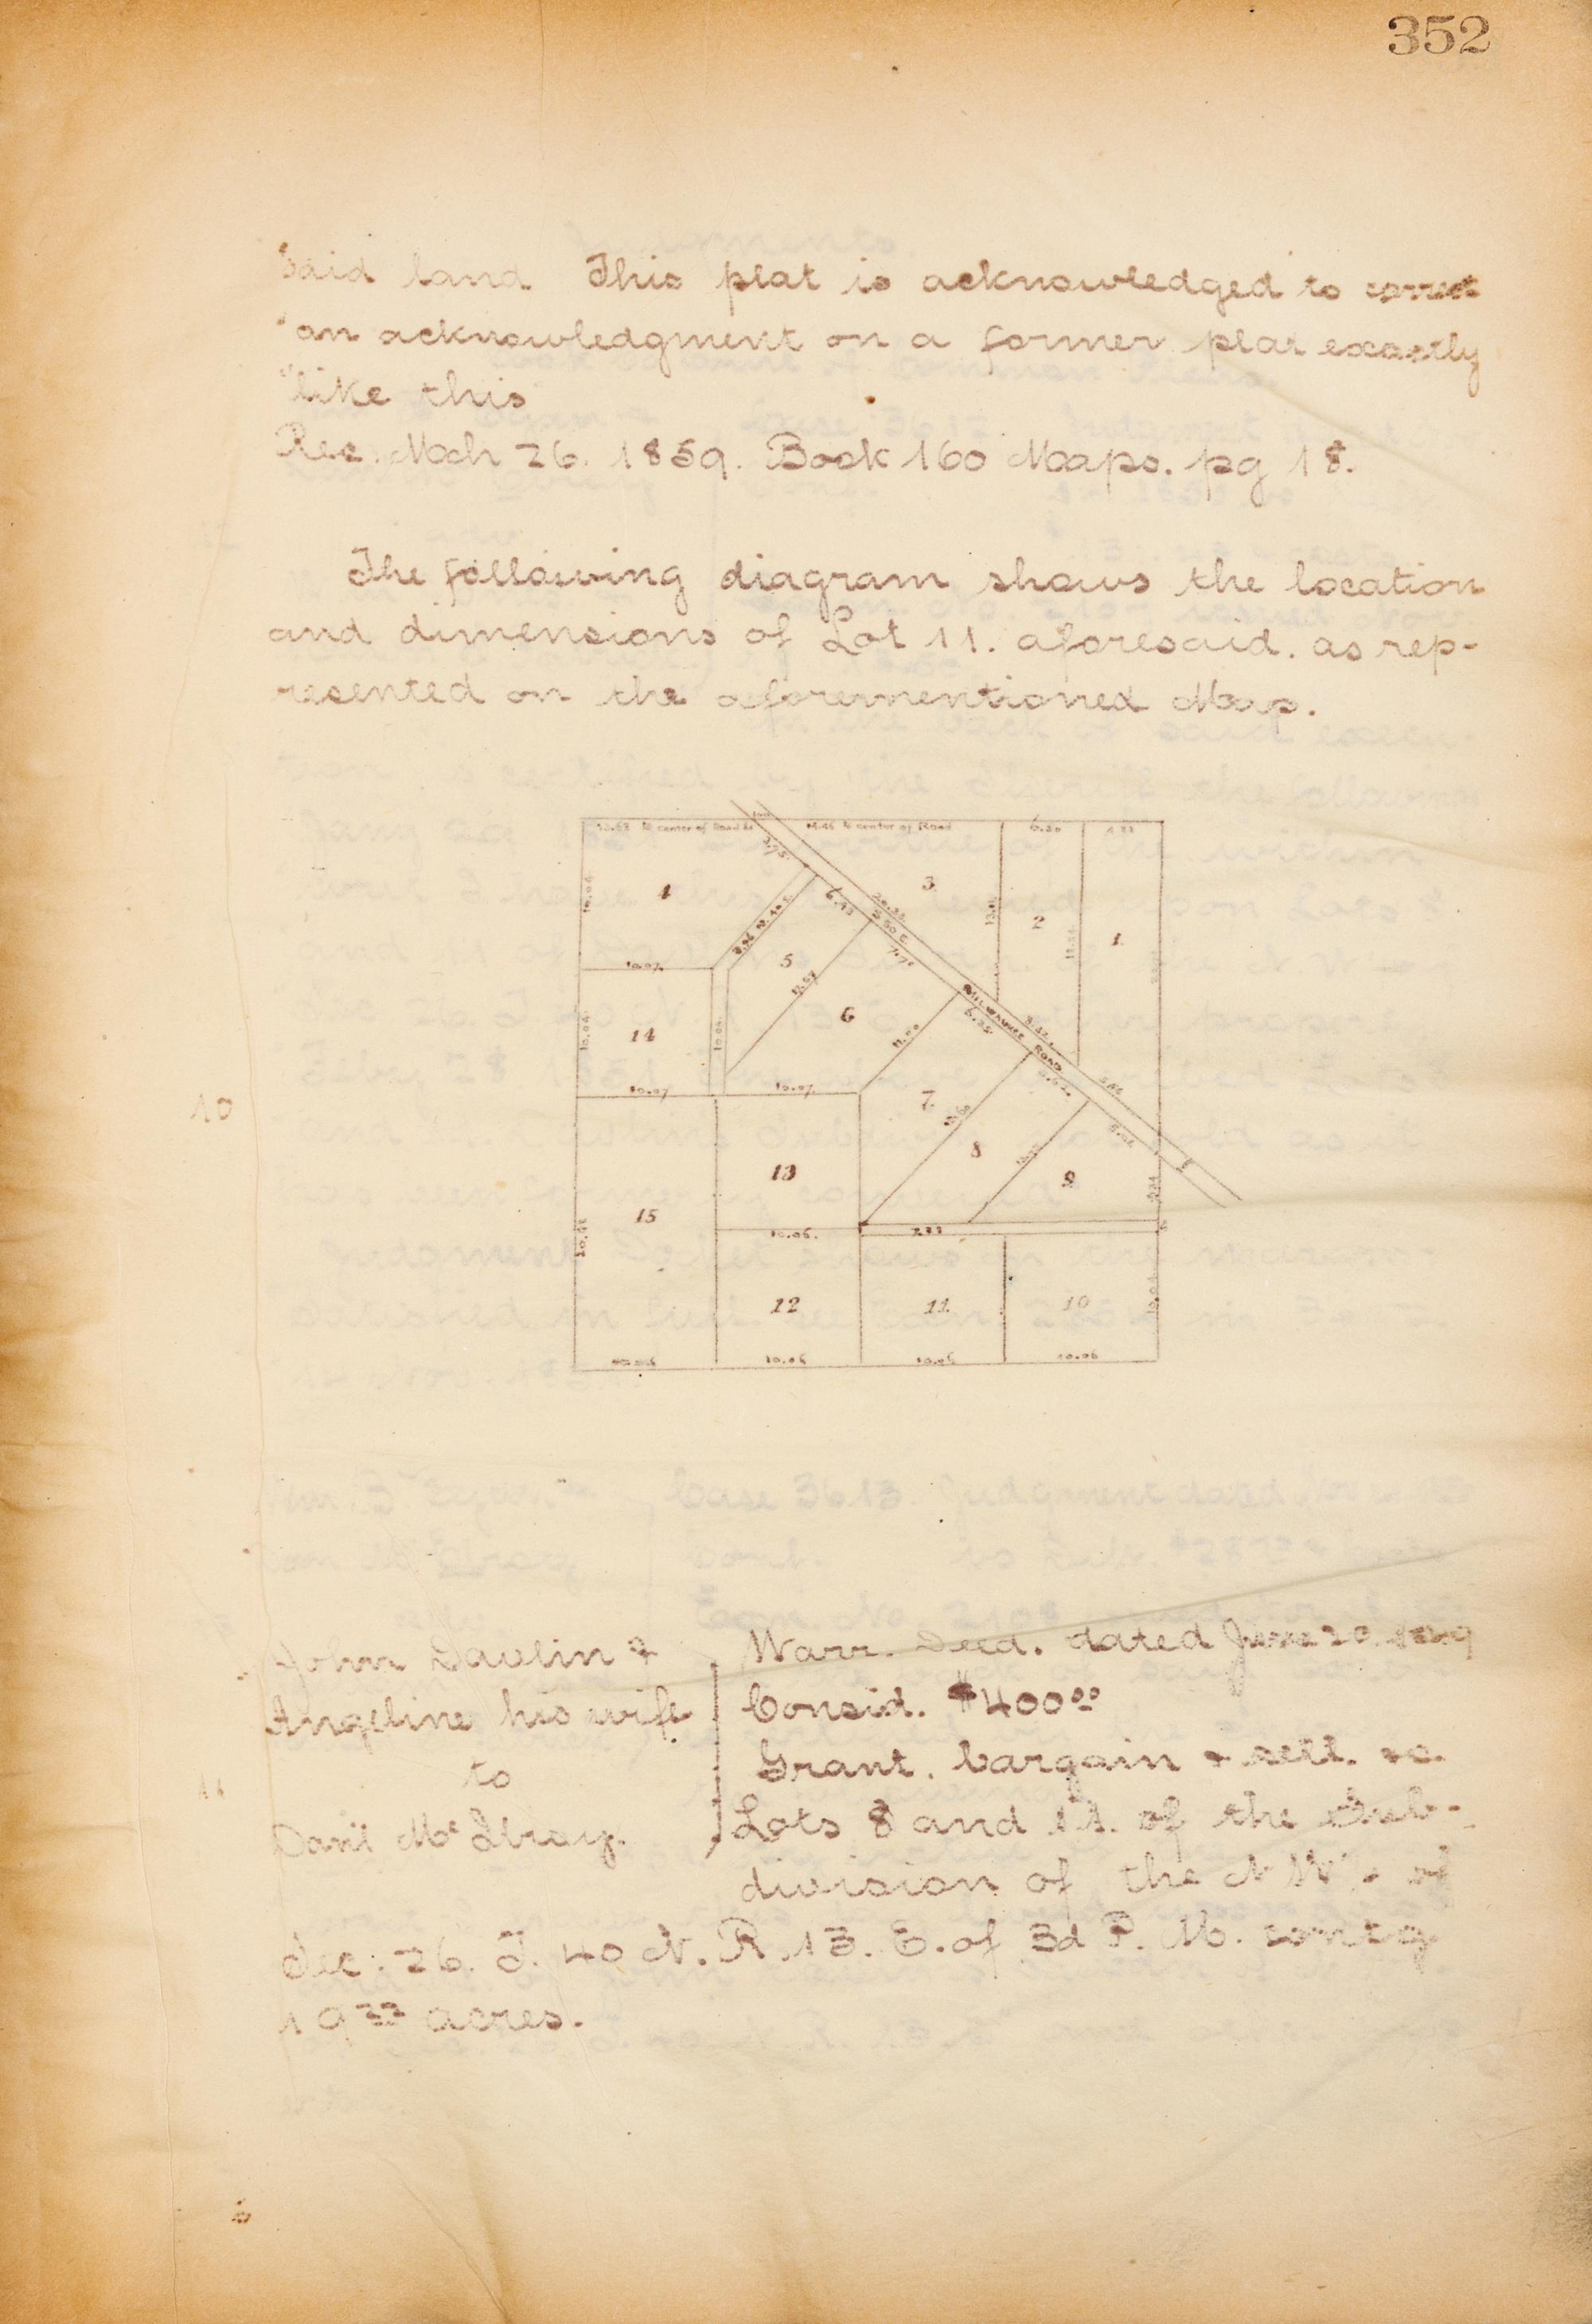 352
"said land This plat is acknowledged to correct
"an acknowledgment on a former plat exactly
"like this
Rec. Mch 26. 1859. Book 160 Maps. pg 18.
The following diagram shows the location
and dimensions of Lot 11. aforesaid. as rep-
resented on the aforementioned Map.
to center of Road
to center of Road
6.20
3.75
10.06
4
3
2
1
6.43
10.07
5
12.57
7.70
6
11.00
MILWAUKEE ROAD
6.35
3.42
10.06
14
10.04
10.07
10.07
7
10
8
9
13
15
10.06.
7.77
12
11.
10
10.06
10.06
10.06
John Davlin &
Angeline his wife
to
Danl. McIlroy.
Warr. Deed. dated June 20. 1849
Consid. $400.00
Grant. bargain & sell. &c.
Lots 8 and 11. of the Sub-
division of the N W ¼ of
Sec: 26. T. 40 N. R. 13. E. of 3d P. M. contg
19 77 acres.